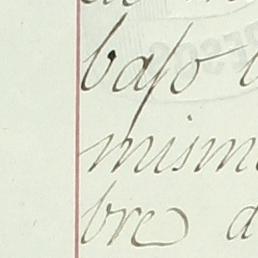 bajo
mism
bre d